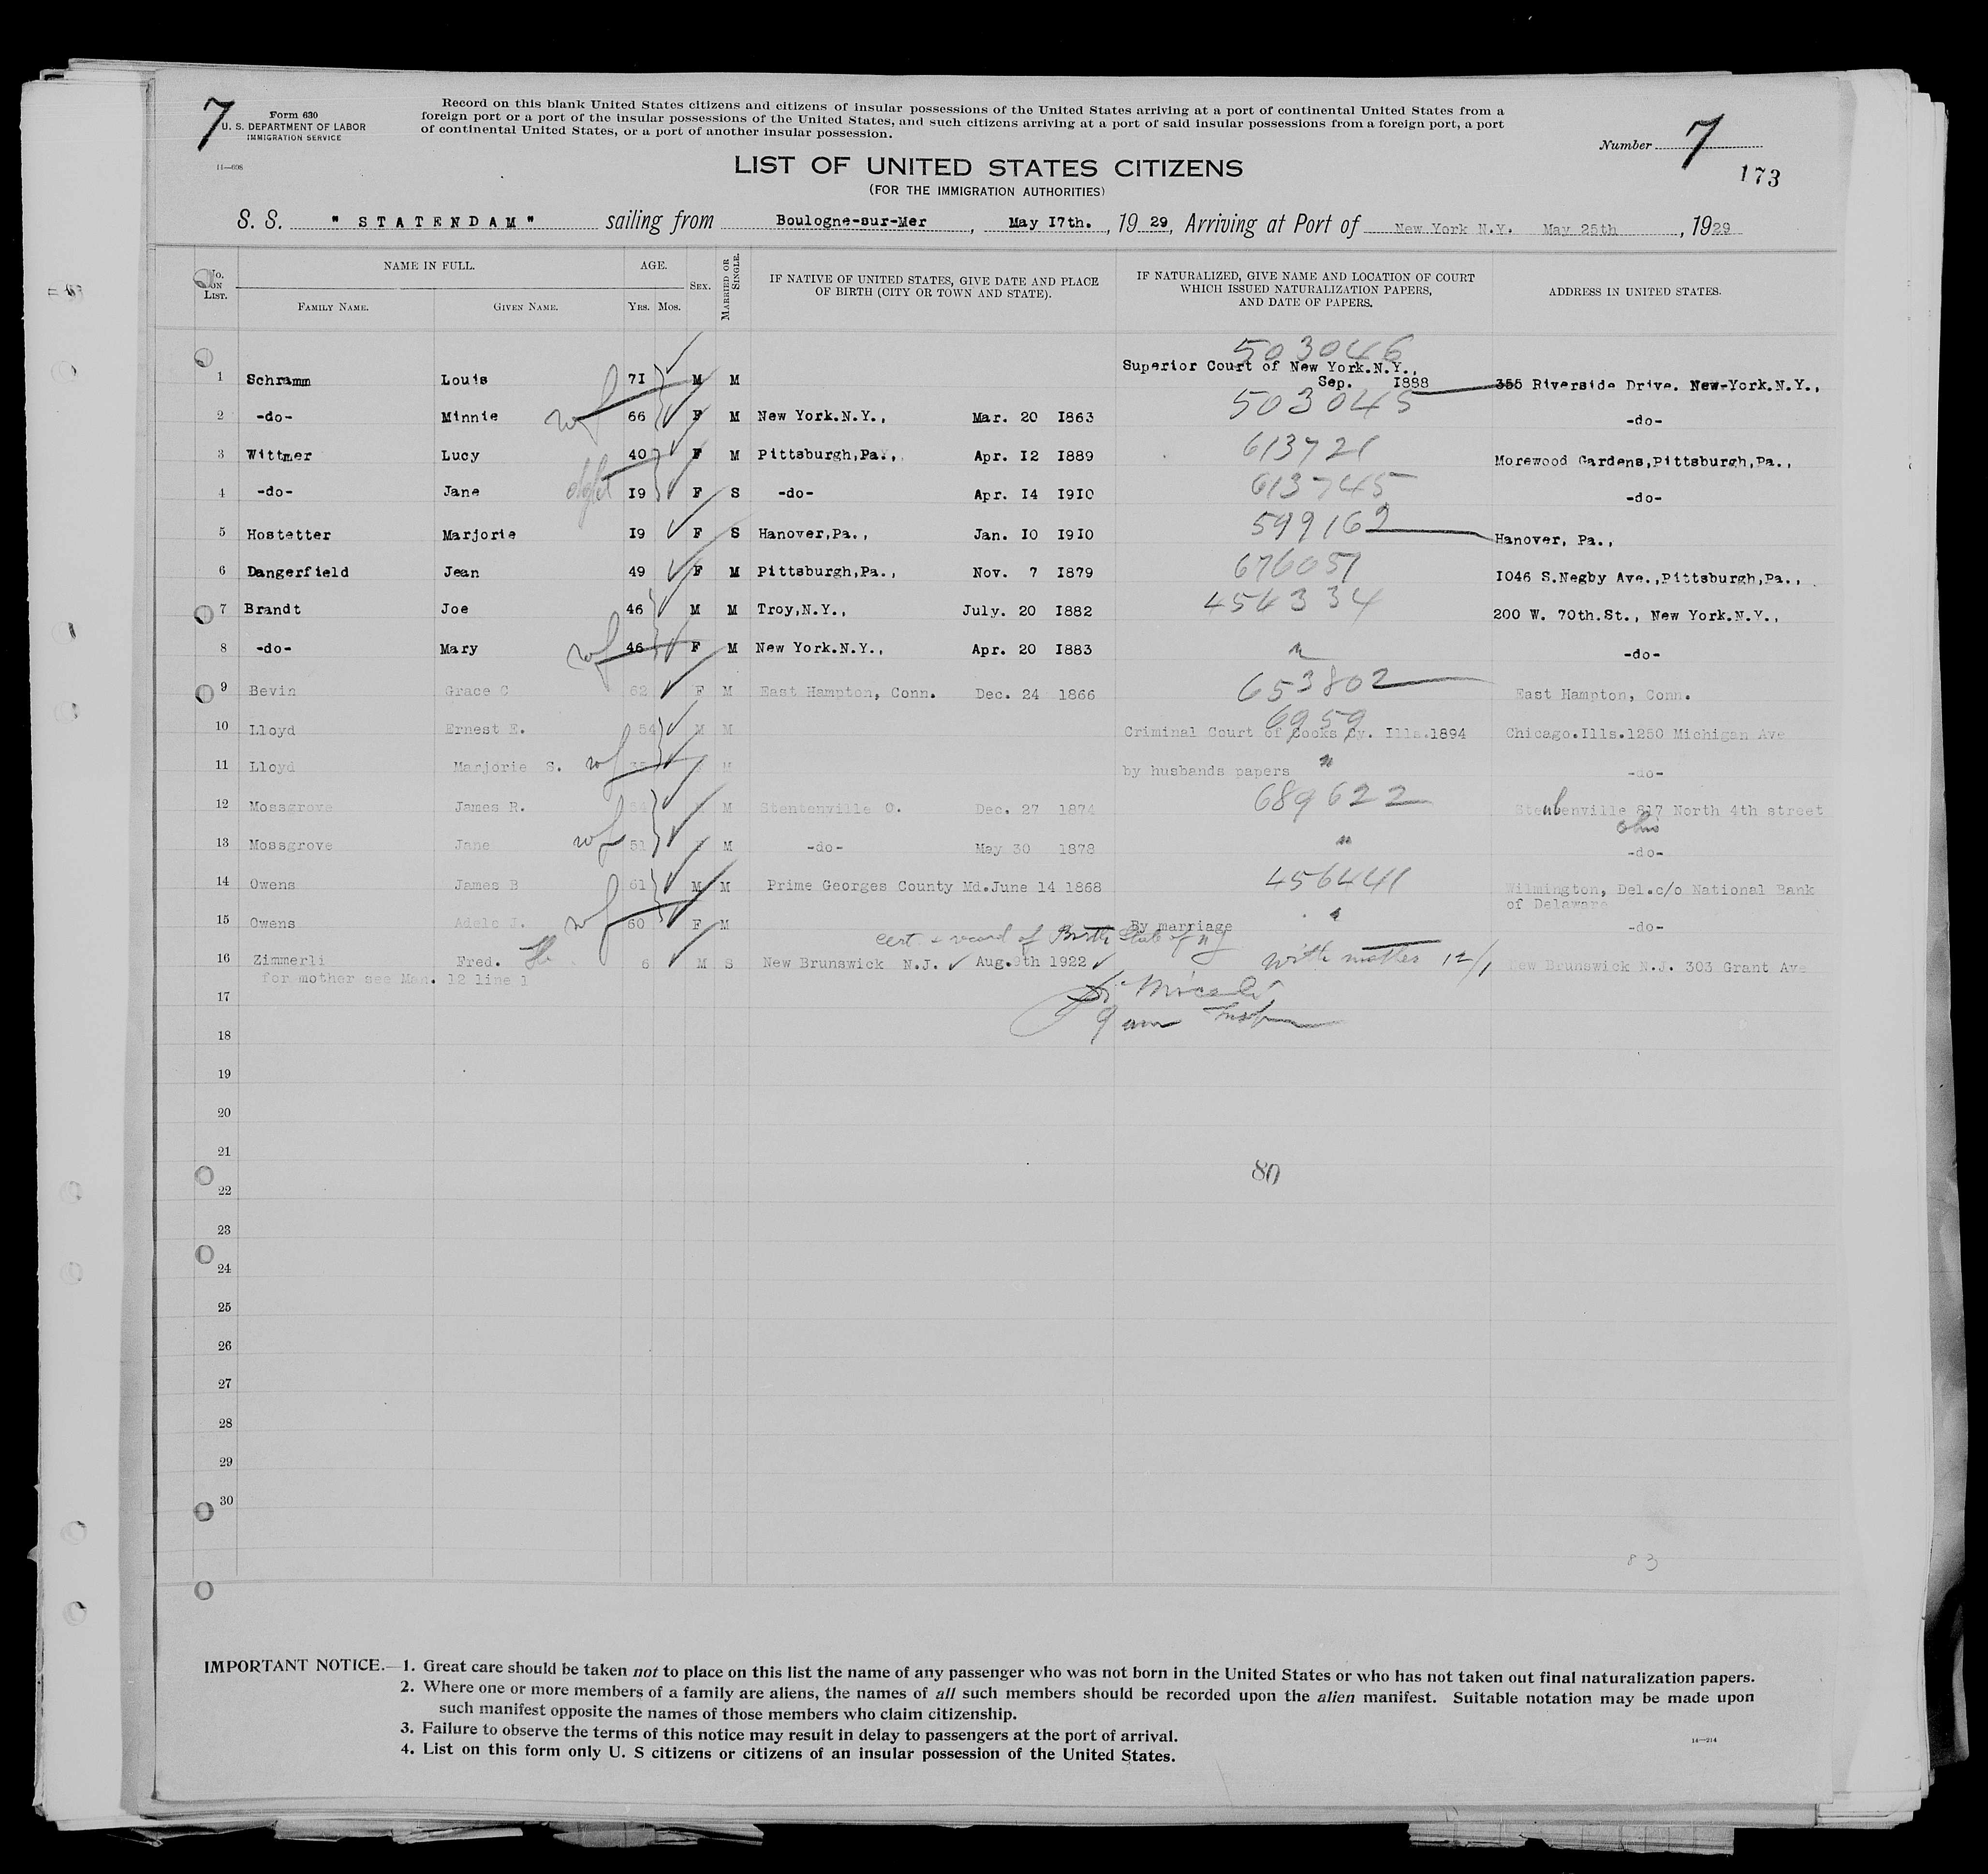 7
Form 630
U. S. DEPARTMENT OF LABOR
IMMIGRATION SERVICE
11—698
Record on this blank United States citizens and citizens of insular possessions of the United States arriving at a port of continental United States from a
foreign port or a port of the insular possessions of the United States, and such citizens arriving at a port of said insular possessions from a foreign port, a port
of continental United States, or a port of another insular possession.
Number 7
173
LIST OF UNITED STATES CITIZENS
(FOR THE IMMIGRATION AUTHORITIES)
S. S. "STATENDAM" sailing from Boulogne-sur-Mer, May 17th., 1929, Arriving at Port of New York N.Y. May 25th, 1929
No. ON LIST. NAME IN FULL. AGE. SEX. MARRIED OR SINGLE. IF NATIVE OF UNITED STATES, GIVE DATE AND PLACE OF BIRTH (CITY OR TOWN AND STATE). IF NATURALIZED, GIVE NAME AND LOCATION OF COURT WHICH ISSUED NATURALIZATION PAPERS, AND DATE OF PAPERS. ADDRESS IN UNITED STATES.
FAMILY NAME. GIVEN NAME. YRS. MOS.
503046
1 Schramm Louis 71 M M Superior Court of New York.N.Y., Sep. 1888 355 Riverside Drive. New-York.N.Y.,
2 -do- Minnie wf 66 F M New York.N.Y., Mar. 20 1863 503045 -do-
3 Wittmer Lucy 40 F M Pittsburgh,Pa., Apr. 12 1889 613721 Morewood Gardens,Pittsburgh,Pa.,
4 -do- Jane 19 F S -do- Apr. 14 1910 613745 -do-
5 Hostetter Marjorie 19 F S Hanover,Pa., Jan. 10 1910 599162 Hanover, Pa.,
6 Dangerfield Jean 49 F M Pittsburgh,Pa., Nov. 7 1879 676051 1046 S.Negby Ave.,Pittsburgh,Pa.,
7 Brandt Joe 46 M M Troy,N.Y., July. 20 1882 454334 200 W. 70th.St., New York.N.Y.,
8 -do- Mary wf 46 F M New York.N.Y., Apr. 20 1883 " -do-
9 Bevin Grace C 62 F M East Hampton, Conn. Dec. 24 1866 653802 East Hampton, Conn.
6959
10 Lloyd Ernest E. 54 M M Criminal Court of Cooks Cy. Ills.1894 Chicago.Ills.1250 Michigan Ave
11 Lloyd Marjorie S. wf M by husbands papers " -do-
12 Mossgrove James R. 54 M Stentenville O. Dec. 27 1874 689622 Steubenville 817 North 4th street
Ohio
13 Mossgrove Jane wf 51 F M -do- May 30 1878 " -do-
14 Owens James B 61 M M Prime Georges County Md.June 14 1868 456441 Wilmington, Del.c/o National Bank
of Delaware
15 Owens Adele J. wf 60 F M By marriage " -do-
cert. record of Birth State of NJ
16 Zimmerli Fred. 6 M S New Brunswick N.J. Aug.9th 1922 with mother 12/1 New Brunswick N.J. 303 Grant Ave
for mother see Man. 12 line 1
17
18
19
20
21
80
22
23
24
25
26
27
28
29
30
83
IMPORTANT NOTICE.—1. Great care should be taken not to place on this list the name of any passenger who was not born in the United States or who has not taken out final naturalization papers.
2. Where one or more members of a family are aliens, the names of all such members should be recorded upon the alien manifest. Suitable notation may be made upon
such manifest opposite the names of those members who claim citizenship.
3. Failure to observe the terms of this notice may result in delay to passengers at the port of arrival.
4. List on this form only U. S citizens or citizens of an insular possession of the United States.
14—214